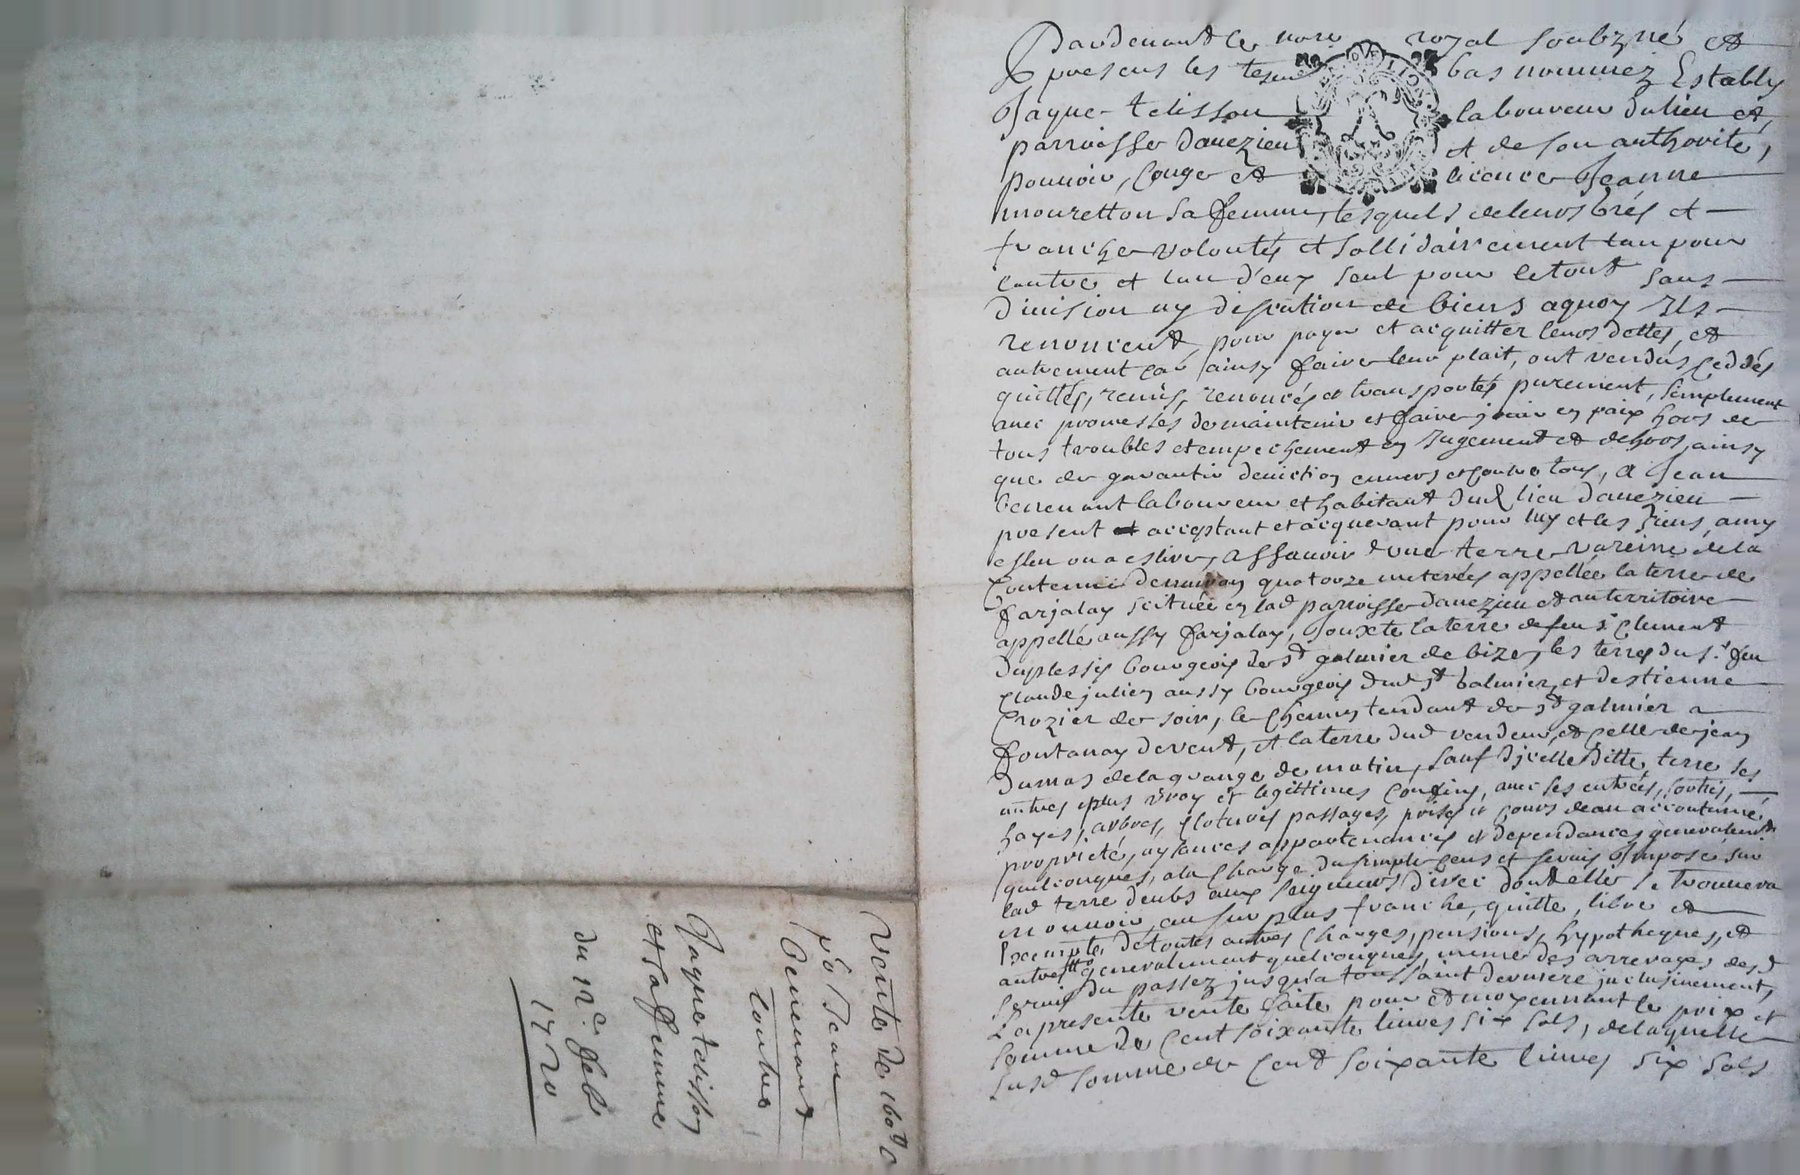 Vente de 160ᵗᵗ 6
po Jean
Benenant
Contre
Jaque telisson
et sa femme
du 12e feb
1720
Pardevant le nore royal soubzné et
presens les tesm bas nommez Estably
Jaque telisson laboureur du lieu et
parroisse d'auezieu et de son authorité,
pouuoir, Conge et licence Jeanne
mouretton sa femme, lesquels de leurs brés et
franche volontés et sollidairement lun pour
lautre et lun d'eux seul pour le tout sans
diuision ny discution de biens a quoy Ils
renoncent, pour payer et acquitter leurs dettes, et
autrement car ainsy faire leur plait, ont vendus, Ceddés
quittés, remis, renoncés et transportés purement, simplement
auec promesses de maintenir et faire jouir en paix hors de
tous troubles et empechement en Jugement et dehors, ainsy
que de garantir deuiction enuers et contre tous, A Jean
benenant laboureur et habitant dud lieu dauezieu
present et acceptant et acquerant pour luy et les siens, amy
esleu ou a eslire, Assauoir une terre vareine de la
Contenue denuiron quatorze meterées appellée la terre de
farjalay scituée en lad parroisse dauezieu et au territoire
appellé aussy farjalay, Jouxte la terre de feu sr Clement
duplessis bourgeois de st galmier de bize, les terres du sr feu
Claude julien aussy bourgeois dud st balmier, et destienne
Crozier de soir, le chemin tendant de st galmier a
fontanay de vent, et la terre dud vendeur, et celle de jean
dumas de la grange de matin, sauf d'jcelle ditte terre ses
autres plus vray et legittimes confins, auec ses entrées, sorties,
hayes, arbres, clotures, passages, prises et cours deau accoutumé,
proprieté, aysances appartenances et dependances generalemt
quelconques, a la charge du simple cens et seruis Imposé sur
lad terre deubs aux seigneurs direc dont elle se trouuera
mouuoir, au surplus franche, quitte, libre et
Exempte de toutes autres charges, pensions, hypotheques, et
autres generalement quelconques, meme des arrerages desd
seruis du passez jusqu'a toussaint derniere jnclusiuement,
La presente vente faite pour et moyennant le prix et
somme de Cent soixante liures six sols, de laquelle
susd somme de Cent soixante liures six sols